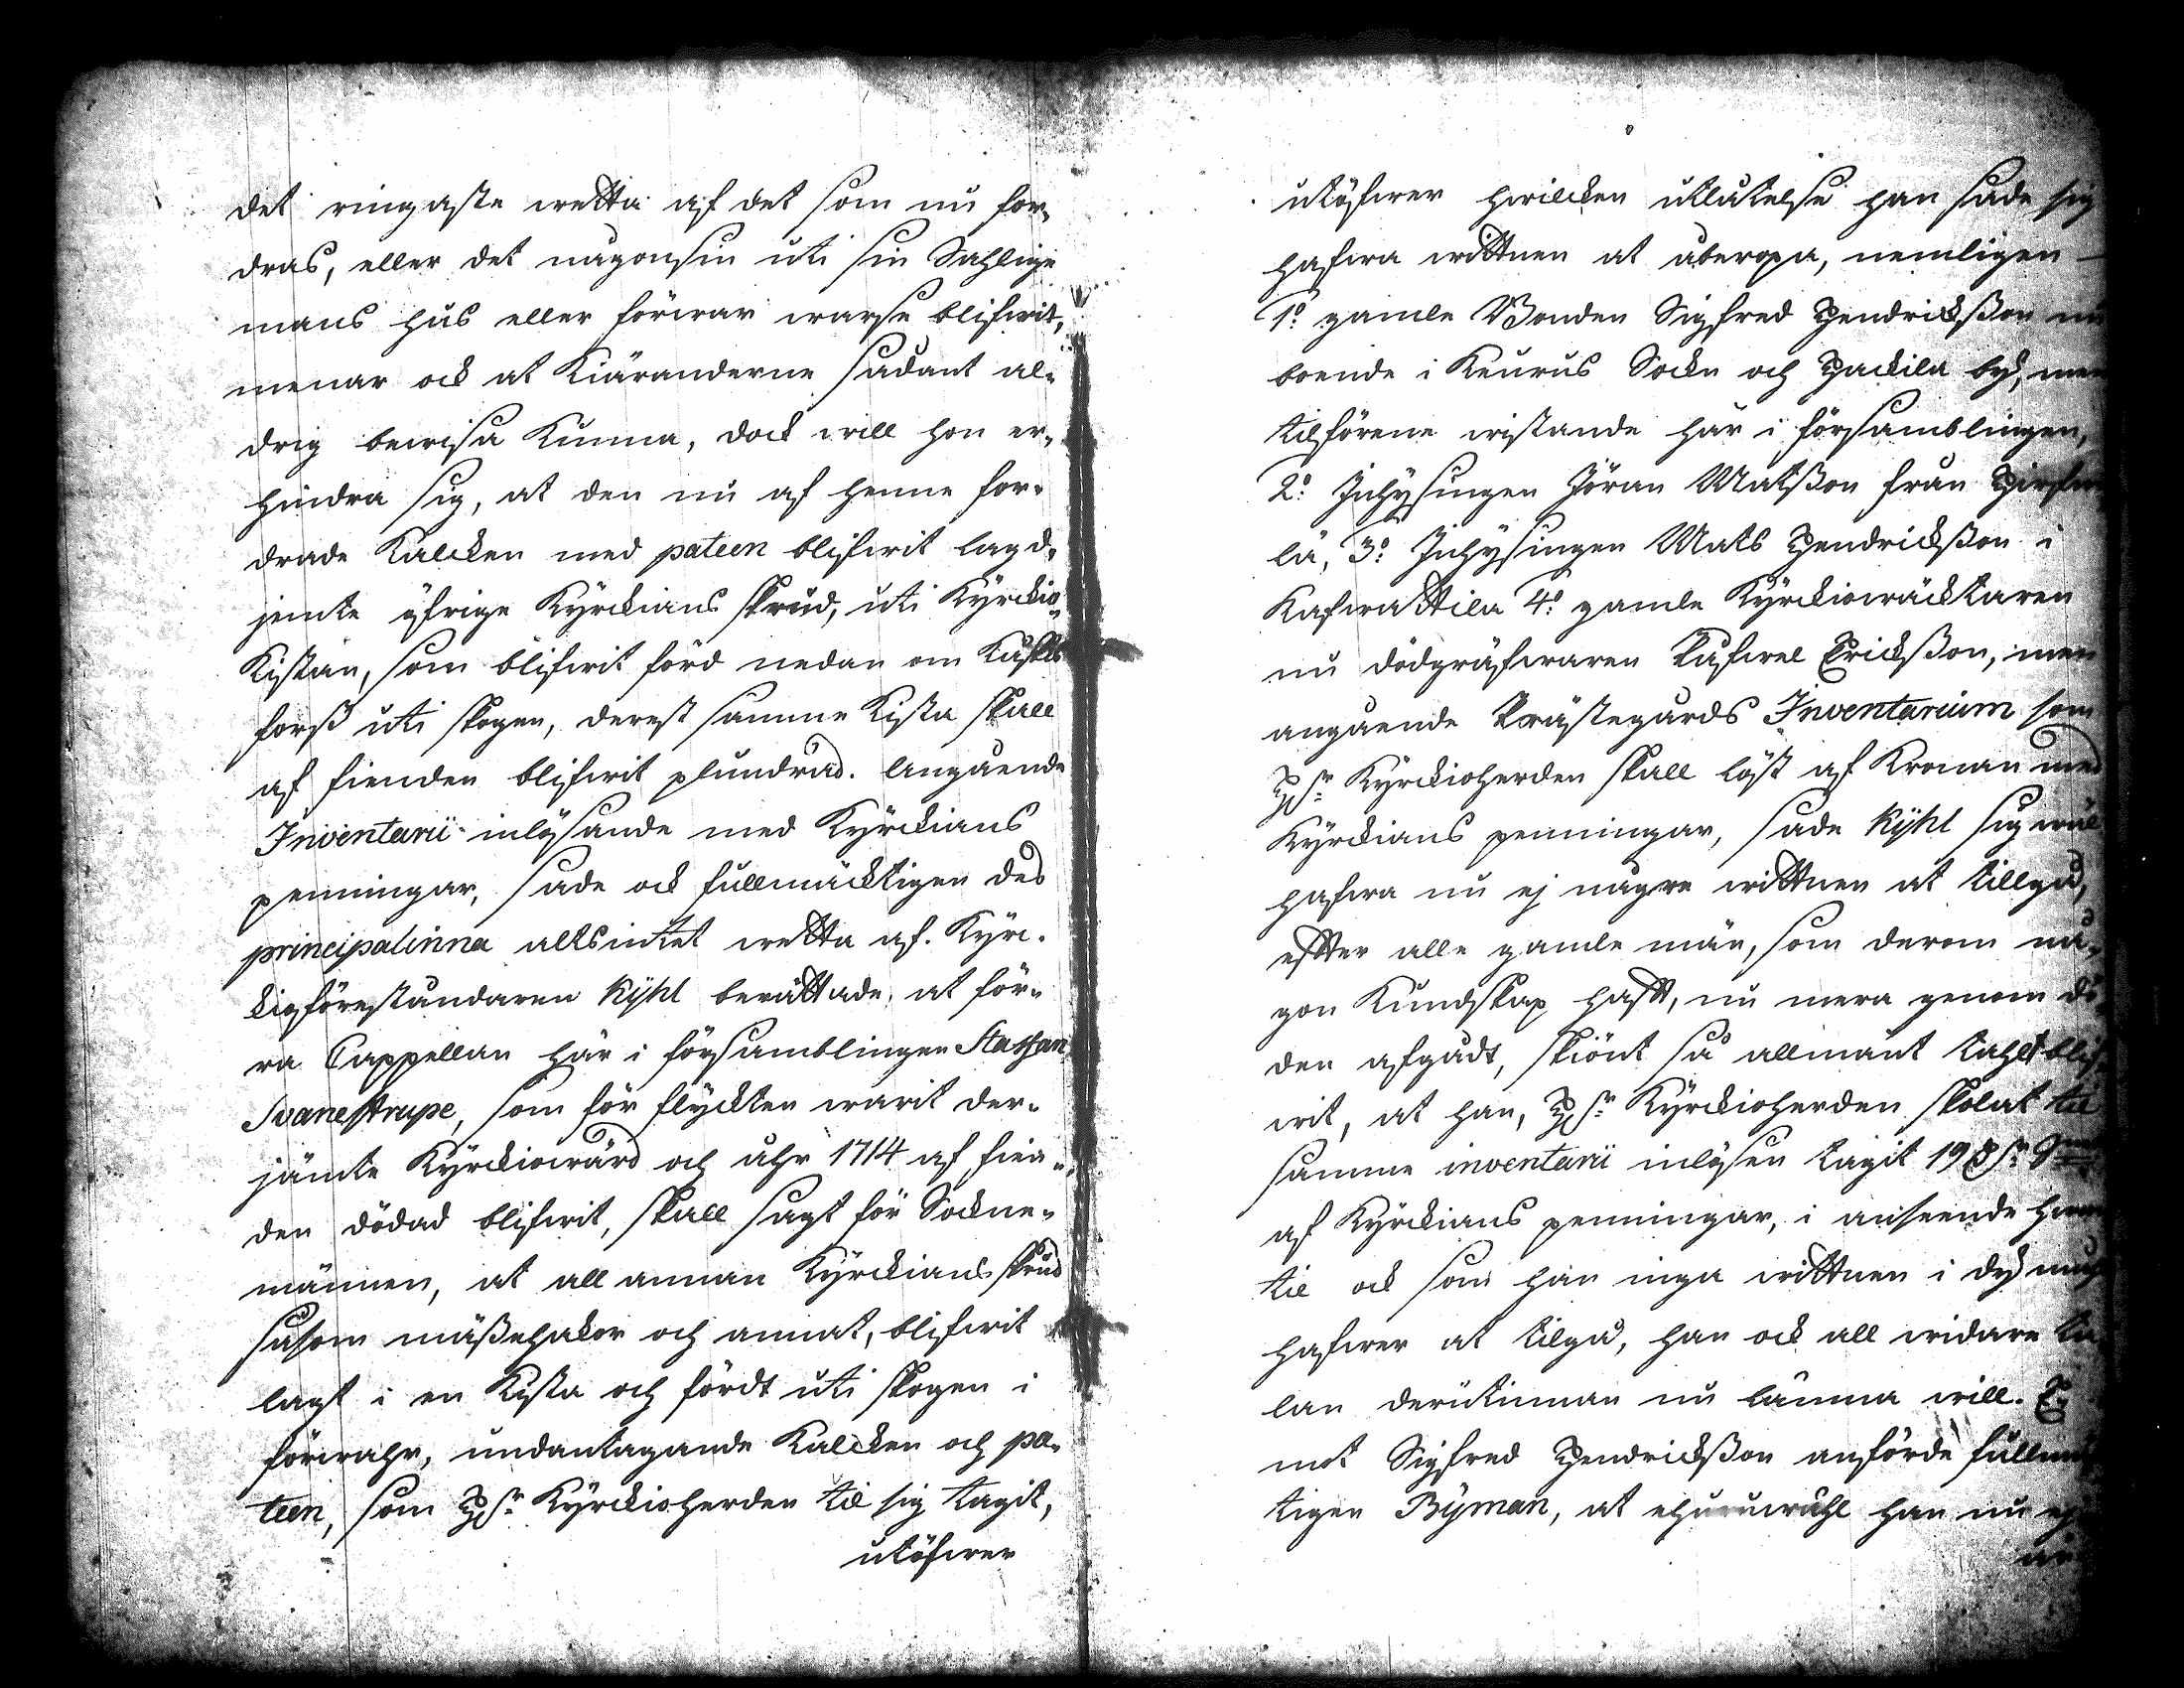 det ringaste wetta af det som nu for-
dras, eller det någonsin uti sin Sahlige
mans hus eller förwar warse blifwit,
menar ock at Kiäranderne sådant al-
drig bewisa Kunna, dock will hon er-
hindra sig, at den nu af henne for-
drade Kalcken med pateen blifwit lagd,
jemte öfrige Kyrckians skrud, uti Kyrckio-
Kistan, som blifwit förd nedan om
forß uti skogen, derest samma Kista skall
af fienden blifwit plundrad. Angående
Inventarii inlösande med Kyrckians
penningar, sade ock fullmäcktigen des
principalinna altsintet wetta af. Kyrc-
kioförestandaren Kyhl berättade, at för-
ra Cappellan här i församblingen Staffan
Svanestrupe, som för flyckten warit der-
jämte Kyrckiowärd och åhr 1714 af fien-
den dödad blifwit, skall sagt för Sockne-
männen, at all annan Kyrckians skrud
såsom mäßehakor och annat, blifwit
lagt i en Kista och fördt uti skogen i
förwahr, undantagande Kalcken och pa-
teen, som H:r Kyrckioherden til sig tagit,
utöfwer
utöfwer hwilcken utlåtelse han sade sig
hafwa wittnen at åberopa, nemligen
1:o gamle Bonden Sigfred Hendrickßon nu
boende i Keurus Sockn och Hackila by, men
tilförene wistande här i församblingen,
2:o Inhysingen Jöran Matßon från
lä, 3:o Inhysingen Mats Hendrickßon i
Kafwattila 4:o gamle Kyrckiowäcktaren
nu dödgräfwaren Påfwel Erickßon, men
angående Prästegårds Inventarium som
H:r Kyrckioherden skall löst af Kronan med
Kyrckians penningar, sade Kyhl sig wäl
hafwa nu ej någre wittnen at tillgå,
efter alle gamle män, som derom nå-
gon Kundskap haft, nu mera genom dö-
den afgådt, skiönt så allmänt tahlt blif-
wit, at han, H:r Kyrckioherden skolat til
samma inventarii inlösen tagit
af Kyrckians penningar, i anseende hwar
til ock som han inga wittnen i dy måhl
hafwer at tilgå, han ock all widare ta-
lan derutinnan nu lämna will. E-
mot Sigfred Hendrickßon anförde fullmäc-
tigen Byman, at ehuruwähl han nu ej